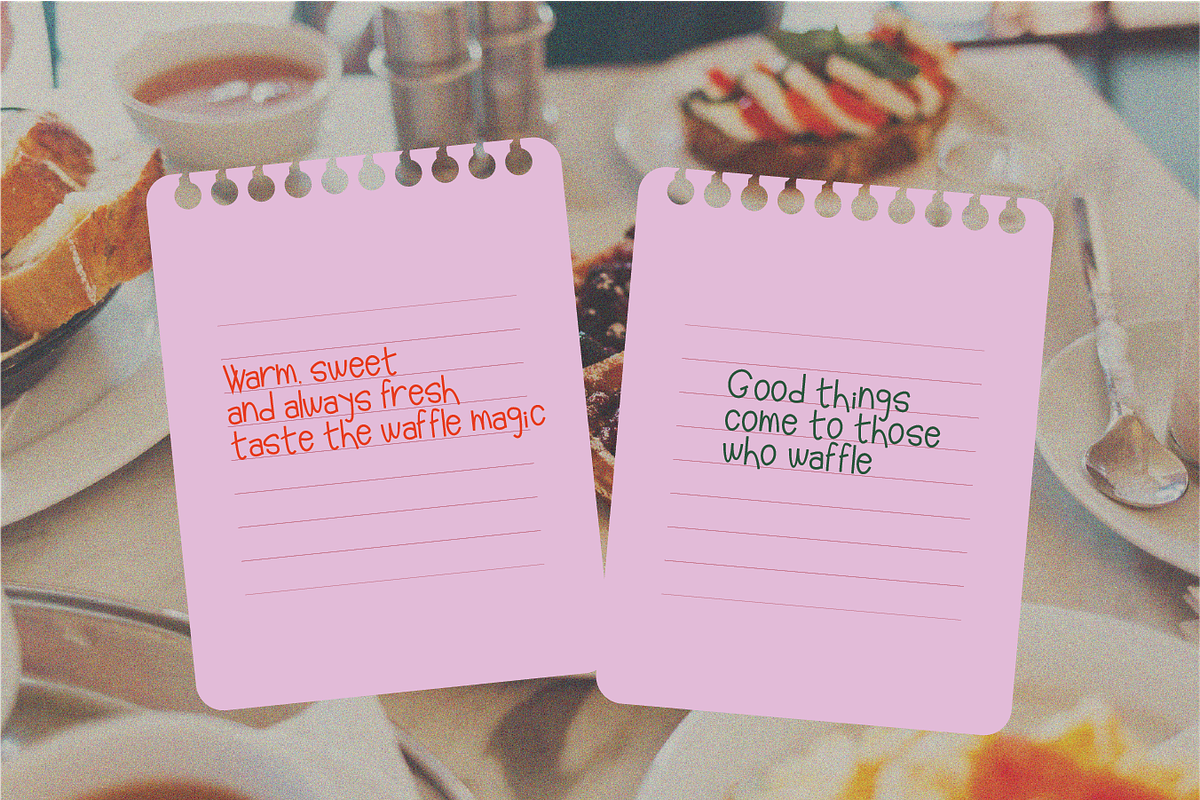 Warm, sweet
and always fresh
taste the waffle magic
Good things
come to those
who waffle